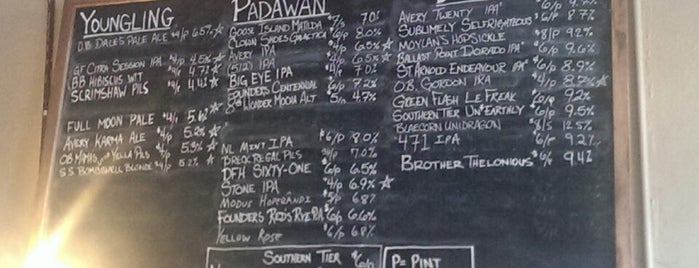 YOUNGLING
O.B. DALE'S PALE ALE $4/P 6.5% ☆
GF CITRA SESSION IPA $4/P 4.5% ☆
BB HIBISCUS WIT $4/ 4.7%
SCRIMSHAW PILS $4/ 4.4%
FULL MOON PALE $4/ 5.6%
AVERY KARMA ALE 5.2% ☆
O.B. MAMA'S YELLA PILS 5.3% ☆
S.S. BOMBSHELL BLONDE $4/P 5.2%
PADAWAN
GOOSE ISLAND MATILDA $7/S 7.0
CLOWN SHOES GALACTICA $6/P 8.0%
AVERY IPA $4/P 6.5% ☆
(512) IPA $4/P 7.0%
BIG EYE IPA $4/P 7.0
FOUNDERS CENTENNIAL 6/P 7.2%
8TH WONDER MOON ALT 5/ 4.9%
NL MINT IPA $6/P 8.0%
REAL PILS
DFH SIXTY-ONE 6/P 6.5%
STONE IPA $4/P 6.9% ☆
MODUS HOPERANDI 6.8%
FOUNDERS RED'S RYE IPA $6/P 6.6%
YELLOW ROSE $6/P 6.8%
SOUTHERN TIER $6/P
AVERY TWENTY IPA
SUBLIMELY SELFRIGHTEOUS $6/ 8.7%
MOYLAN'S HOPSICKLE 9.2%
BALLAST POINT DORADO IPA 6/P 9.6%
ST ARNOLD ENDEAVOUR IPA $6/P 8.9%
O.B. GORDON IRA $4/P 8.7% ☆
GREEN FLASH LE FREAK 9.2%
SOUTHERN TIER UN*EARTHLY 6/P 9.5%
BLAECORN UNIDRAGON $8/S 12.5%
$471 IPA 6/P 9.2%
BROTHER THELONIOUS $6/ 9.4%
P= PINT